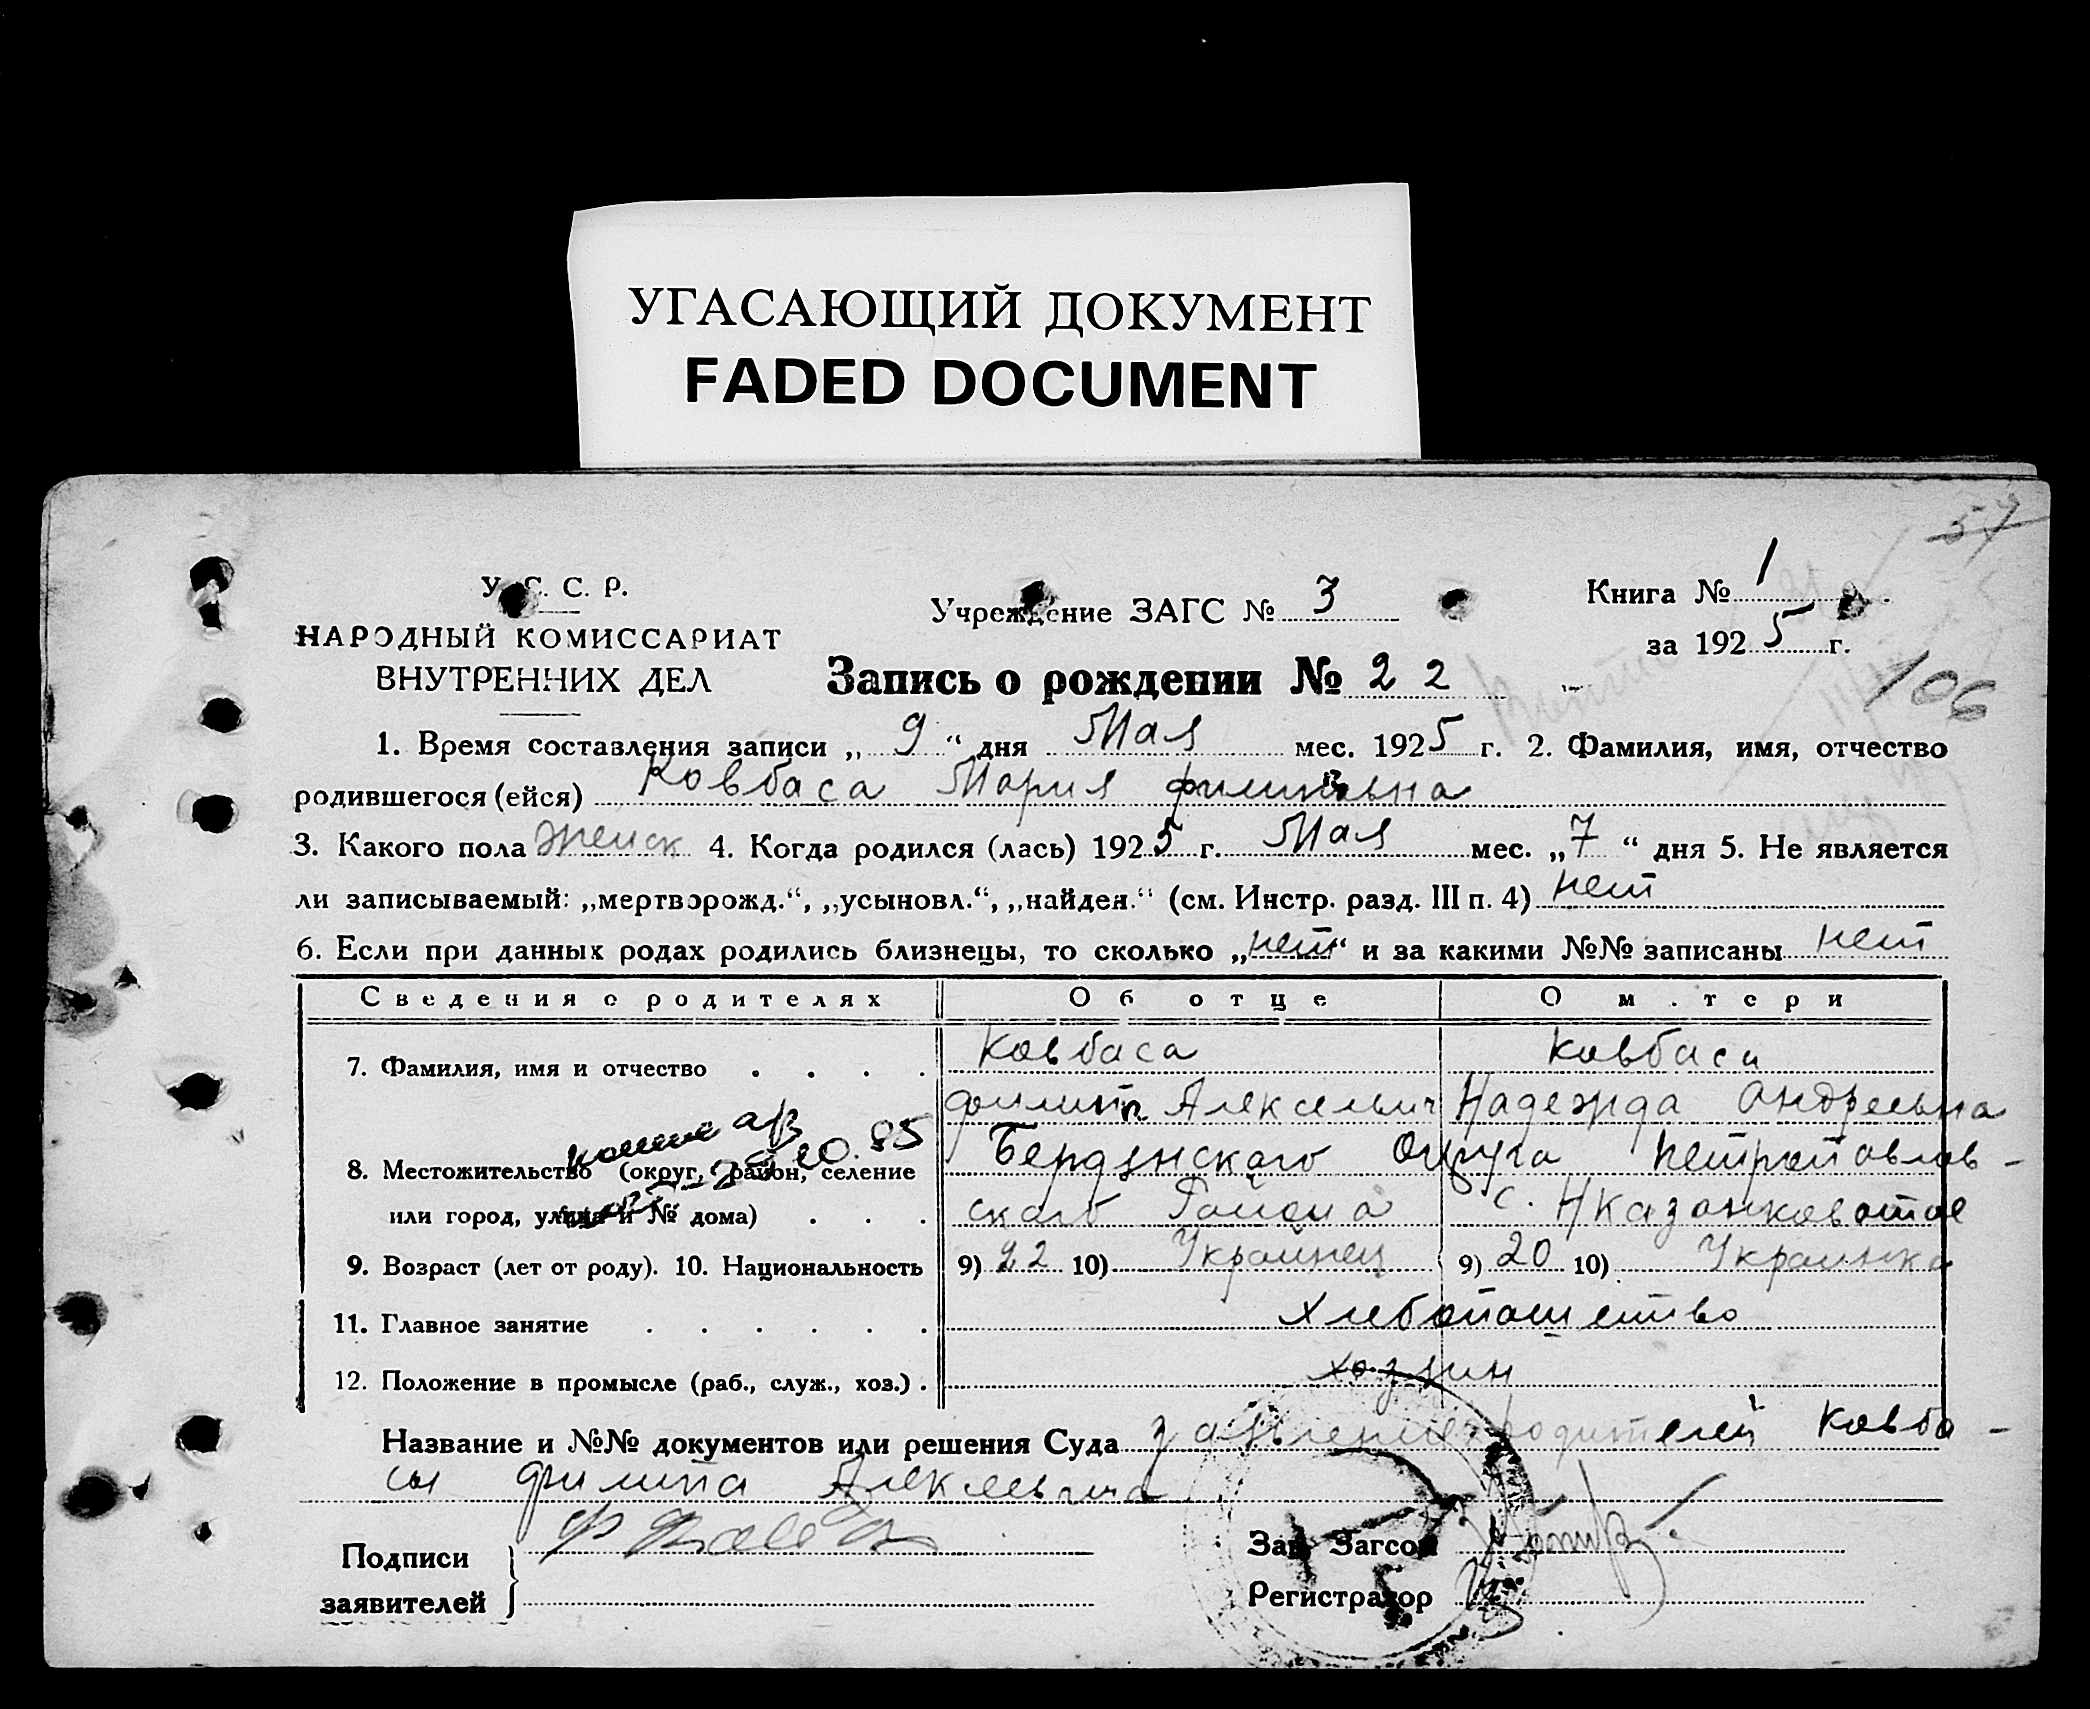 УГАСАЮЩИЙ ДОКУМЕНТ
FADED DOCUMENT
57
У. С. С. Р.
НАРОДНЫЙ КОМИССАРИАТ
ВНУТРЕННИХ ДЕЛ
Учреждение ЗАГС № 3
Книга № 1
за 1925 г.
Запись о рождении № 22
106
1. Время составления записи „9“ дня Мая мес. 1925 г. 2. Фамилия, имя, отчество
родившегося (ейся) Ковбаса Мария Филиповна
3. Какого пола женск 4. Когда родился (лась) 1925 г. Мая мес. „7“ дня 5. Не является
ли записываемый: „мертворожд.“, „усыновл.“, „найден.“ (см. Инстр. разд. III п. 4) нет
6. Если при данных родах родились близнецы, то сколько „нет“ и за какими №№ записаны нет
Сведения о родителях Об отце О м.тери
7. Фамилия, имя и отчество . . . . Ковбаса Ковбаса
Филипп Алексеевич Надежда Андреевна
8. Местожительство (округ, район, селение Бердянского Округа Петропавлов-
или город, улица и № дома) . . . ского Района с.
9. Возраст (лет от роду). 10. Национальность 9) 22 10) Украинец 9) 20 10) Украинка
11. Главное занятие . . . . . . хлебопашество
12. Положение в промысле (раб., служ., хоз.) . хозяин
Название и №№ документов или решения Суда заявление родителей Ковба-
сы Филипа Алексеевича
Подписи
заявителей
Зав. Загсом
Регистратор